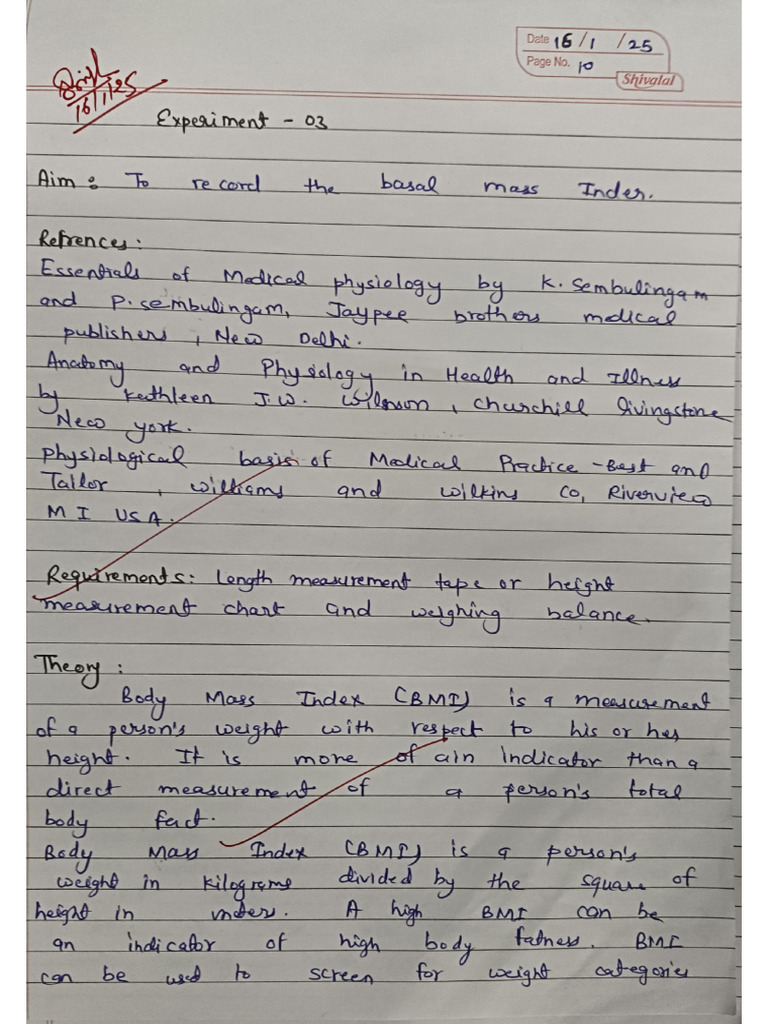 Date 16/1/25
Page No. 10
Shivalal
16/1/25
Experiment - 03
Aim: To record the basal mass Index.
Refrences:
Essentials of Medical physiology by K. Sembulingam
and P. sembulingam, Jaypee brothers medical
publishers, New Delhi.
Anatomy and Physiology in Health and Illness
by Kathleen J.W. Wilson, Churchill livingstone
New york.
physiological basis of Medical Practice - Best and
Tailor, williams and wilkins Co, Riverview
M I USA.
Requirements: Length measurement tape or height
measurement chart and weighing balance.
Theory:
Body Mass Index (BMI) is a measurement
of a person's weight with respect to his or her
height. It is more of ain indicator than a
direct measurement of a person's total
body fact.
Body Mass Index (BMI) is a person's
weight in kilograms divided by the square of
height in meters. A high BMI can be
an indicator of high body fatness. BMI
can be used to screen for weight categories